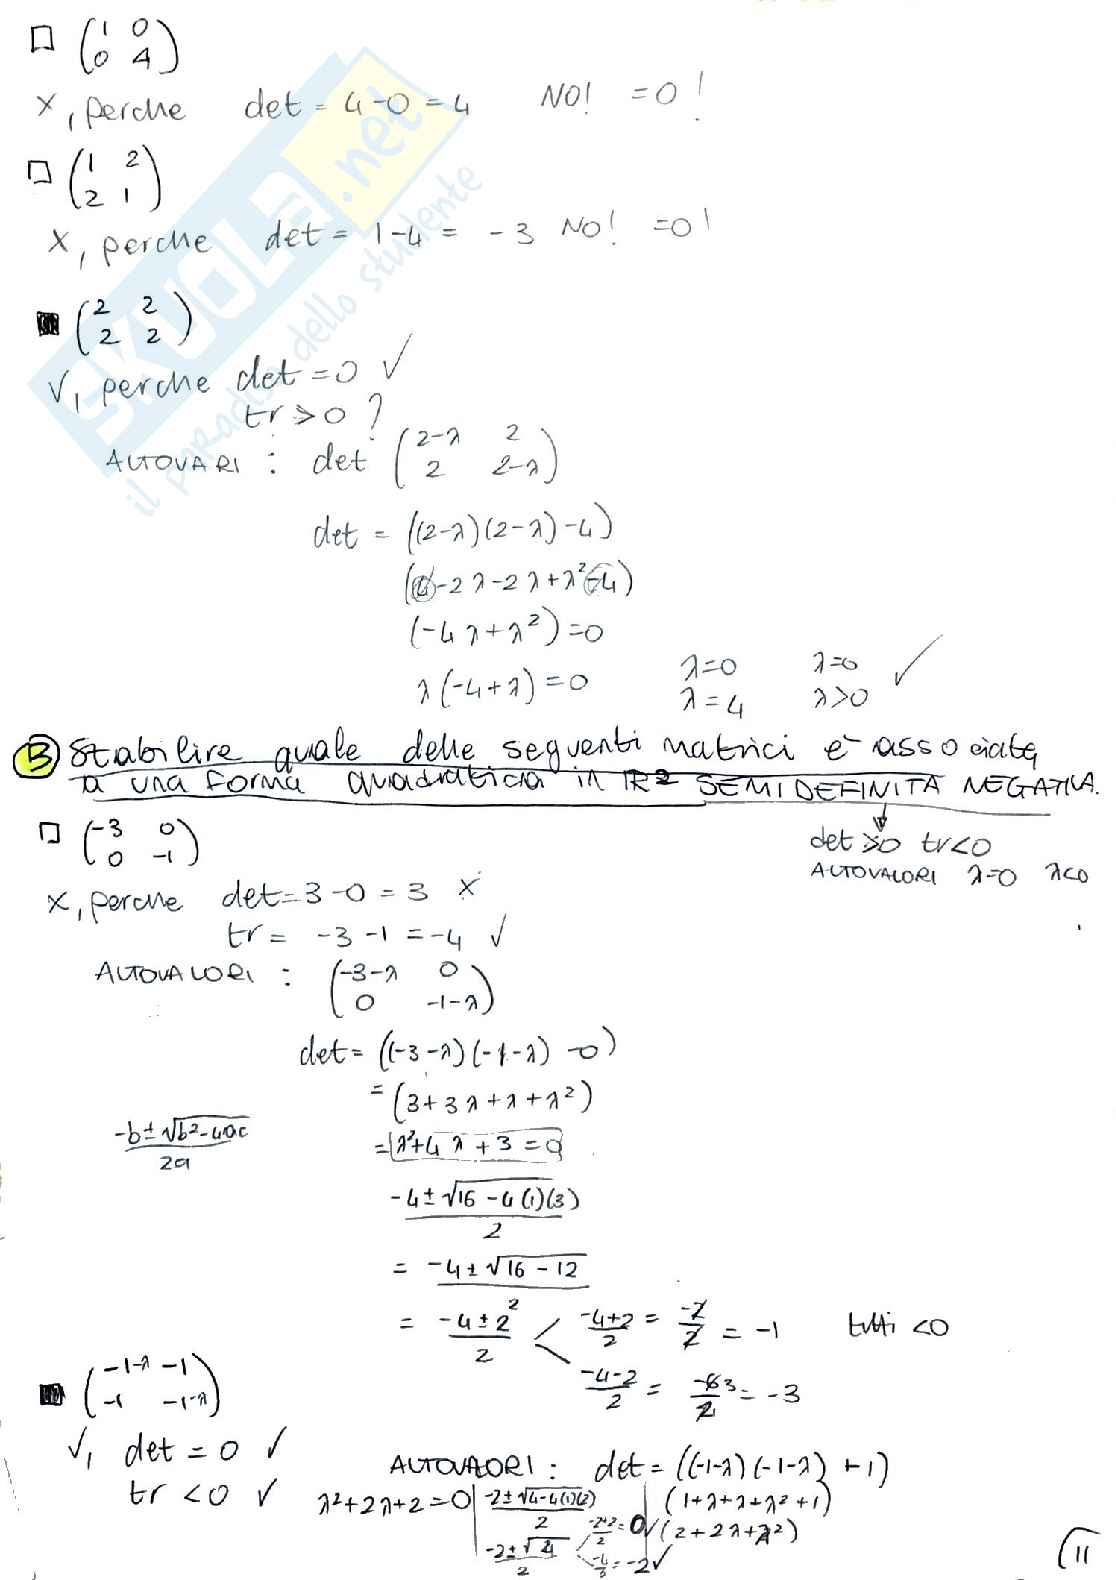 □ (1 0
0 4)
x, perche det = 4-0 = 4 NO! =0!
□ (1 2
2 1)
x, perche det = 1-4 = -3 NO! =0!
■ (2 2
2 2)
√, perche det = 0 √
tr > 0 ?
AUTOVARI : det (2-λ 2
2 2-λ)
det = ((2-λ)(2-λ)-4)
(4-2λ-2λ+λ²-4)
(-4λ+λ²)=0
λ(-4+λ)=0 λ=0 λ=0 √
λ=4 λ>0
B) Stabilire quale delle seguenti matrici è associata
a una forma quadratica in R² SEMIDEFINITA NEGATIVA.
□ (-3 0
0 -1)
det ≥0 tr<0
AUTOVALORI λ=0 λ<0
x, perche det=3-0=3 x
tr= -3-1=-4 √
AUTOVALORI : (-3-λ 0
0 -1-λ)
det= ((-3-λ)(-1-λ)-0)
=(3+3λ+λ+λ²)
-b±√b²-4ac
2a
=λ²+4λ+3=0
-4±√16-4(1)(3)
2
= -4±√16-12
= -4±2² / 2 -4+2 / 2 = -2 / 2 = -1 tutti <0
-4-2 / 2 = -63 / 2 = -3
■ (-1-λ -1
-1 -1-λ)
√, det = 0 √ AUTOVALORI : det = ((-1-λ)(-1-λ)+1)
tr <0 √ λ²+2λ+2=0 -2±√4-4(1)(2) / 2 (1+λ+λ+λ²+1)
-2+2 / 2 = 0√ (2+2λ+λ²)
-2±√4 / 2 = -2√
11
SKUOLA.net
il paradiso dello studente